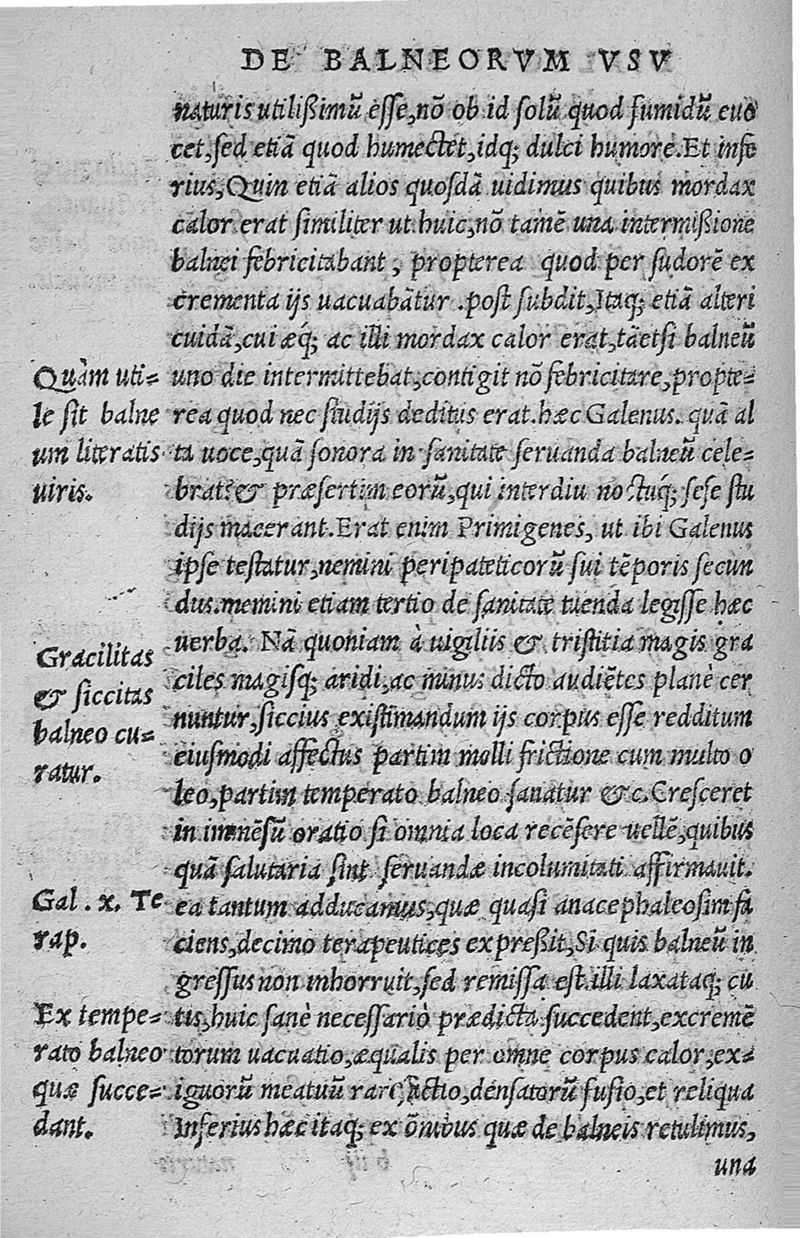 DE BALNEORVM VSV
naturis utilißimū esse,nō ob id solū quod fumidū euo
cet,sed etiā quod humectet,idq; dulci humore.Et infe
rius,Quin etiā alios quosdā uidimus quibus mordax
calor erat similiter ut huic,nō tamē una intermißione
balnei febricitabant, propterea quod per sudorē ex
crementa ijs uacuabātur .post subdit,Itaq; etiā alteri
cuidā,cui æq́; ac illi mordax calor erat,tāetsi balneū
uno die intermittebat,contigit nō febricitare,propte=
rea quod nec studijs deditus erat.hæc Galenus. quā al
ta uoce,quā sonora in sanitate seruanda balneū cele=
brat? & præsertim eorū,qui interdiu noctuq; sese stu
dijs macerant.Erat enim Primigenes, ut ibi Galenus
ipse testatur,nemini peripateticorū sui tēporis secun
dus.memini etiam tertio de sanitate tuenda legisse hæc
uerba. Nā quoniam à uigiliis & tristitia magis gra
ciles magisq; aridi,ac minus dicto audiētes planè cer
nuntur,siccius existimandum ijs corpus esse redditum
eiusmodi affectus partim molli frictione cum multo o
leo,partim temperato balneo sanatur &c.Cresceret
in immēsū oratio si omnia loca recēsere uellē,quibus
quā salutaria sint seruandæ incolumitati affirmauit.
ea tantum adducamus,quæ quasi anacephaleosim fa
ciens,decimo terapeutices expreßit,Si quis balneū in
gressus non inhorruit,sed remissa est illi laxataq; cu
tis,huic sanè necessariò prædicta succedent,excremē
torum uacuatio,æqualis per omne corpus calor,ex=
iguorū meatuū rarefactio,densatorū fusio,et reliqua
Inferius hæc itaq; ex ōnibus quæ de balneis retulimus,
una
Quàm uti=
le sit balne
um literatis
uiris.
Gracilitas
& siccitas
balneo cu=
ratur.
Gal . x. Te
rap.
Ex tempe=
rato balneo
quæ succe=
dant.